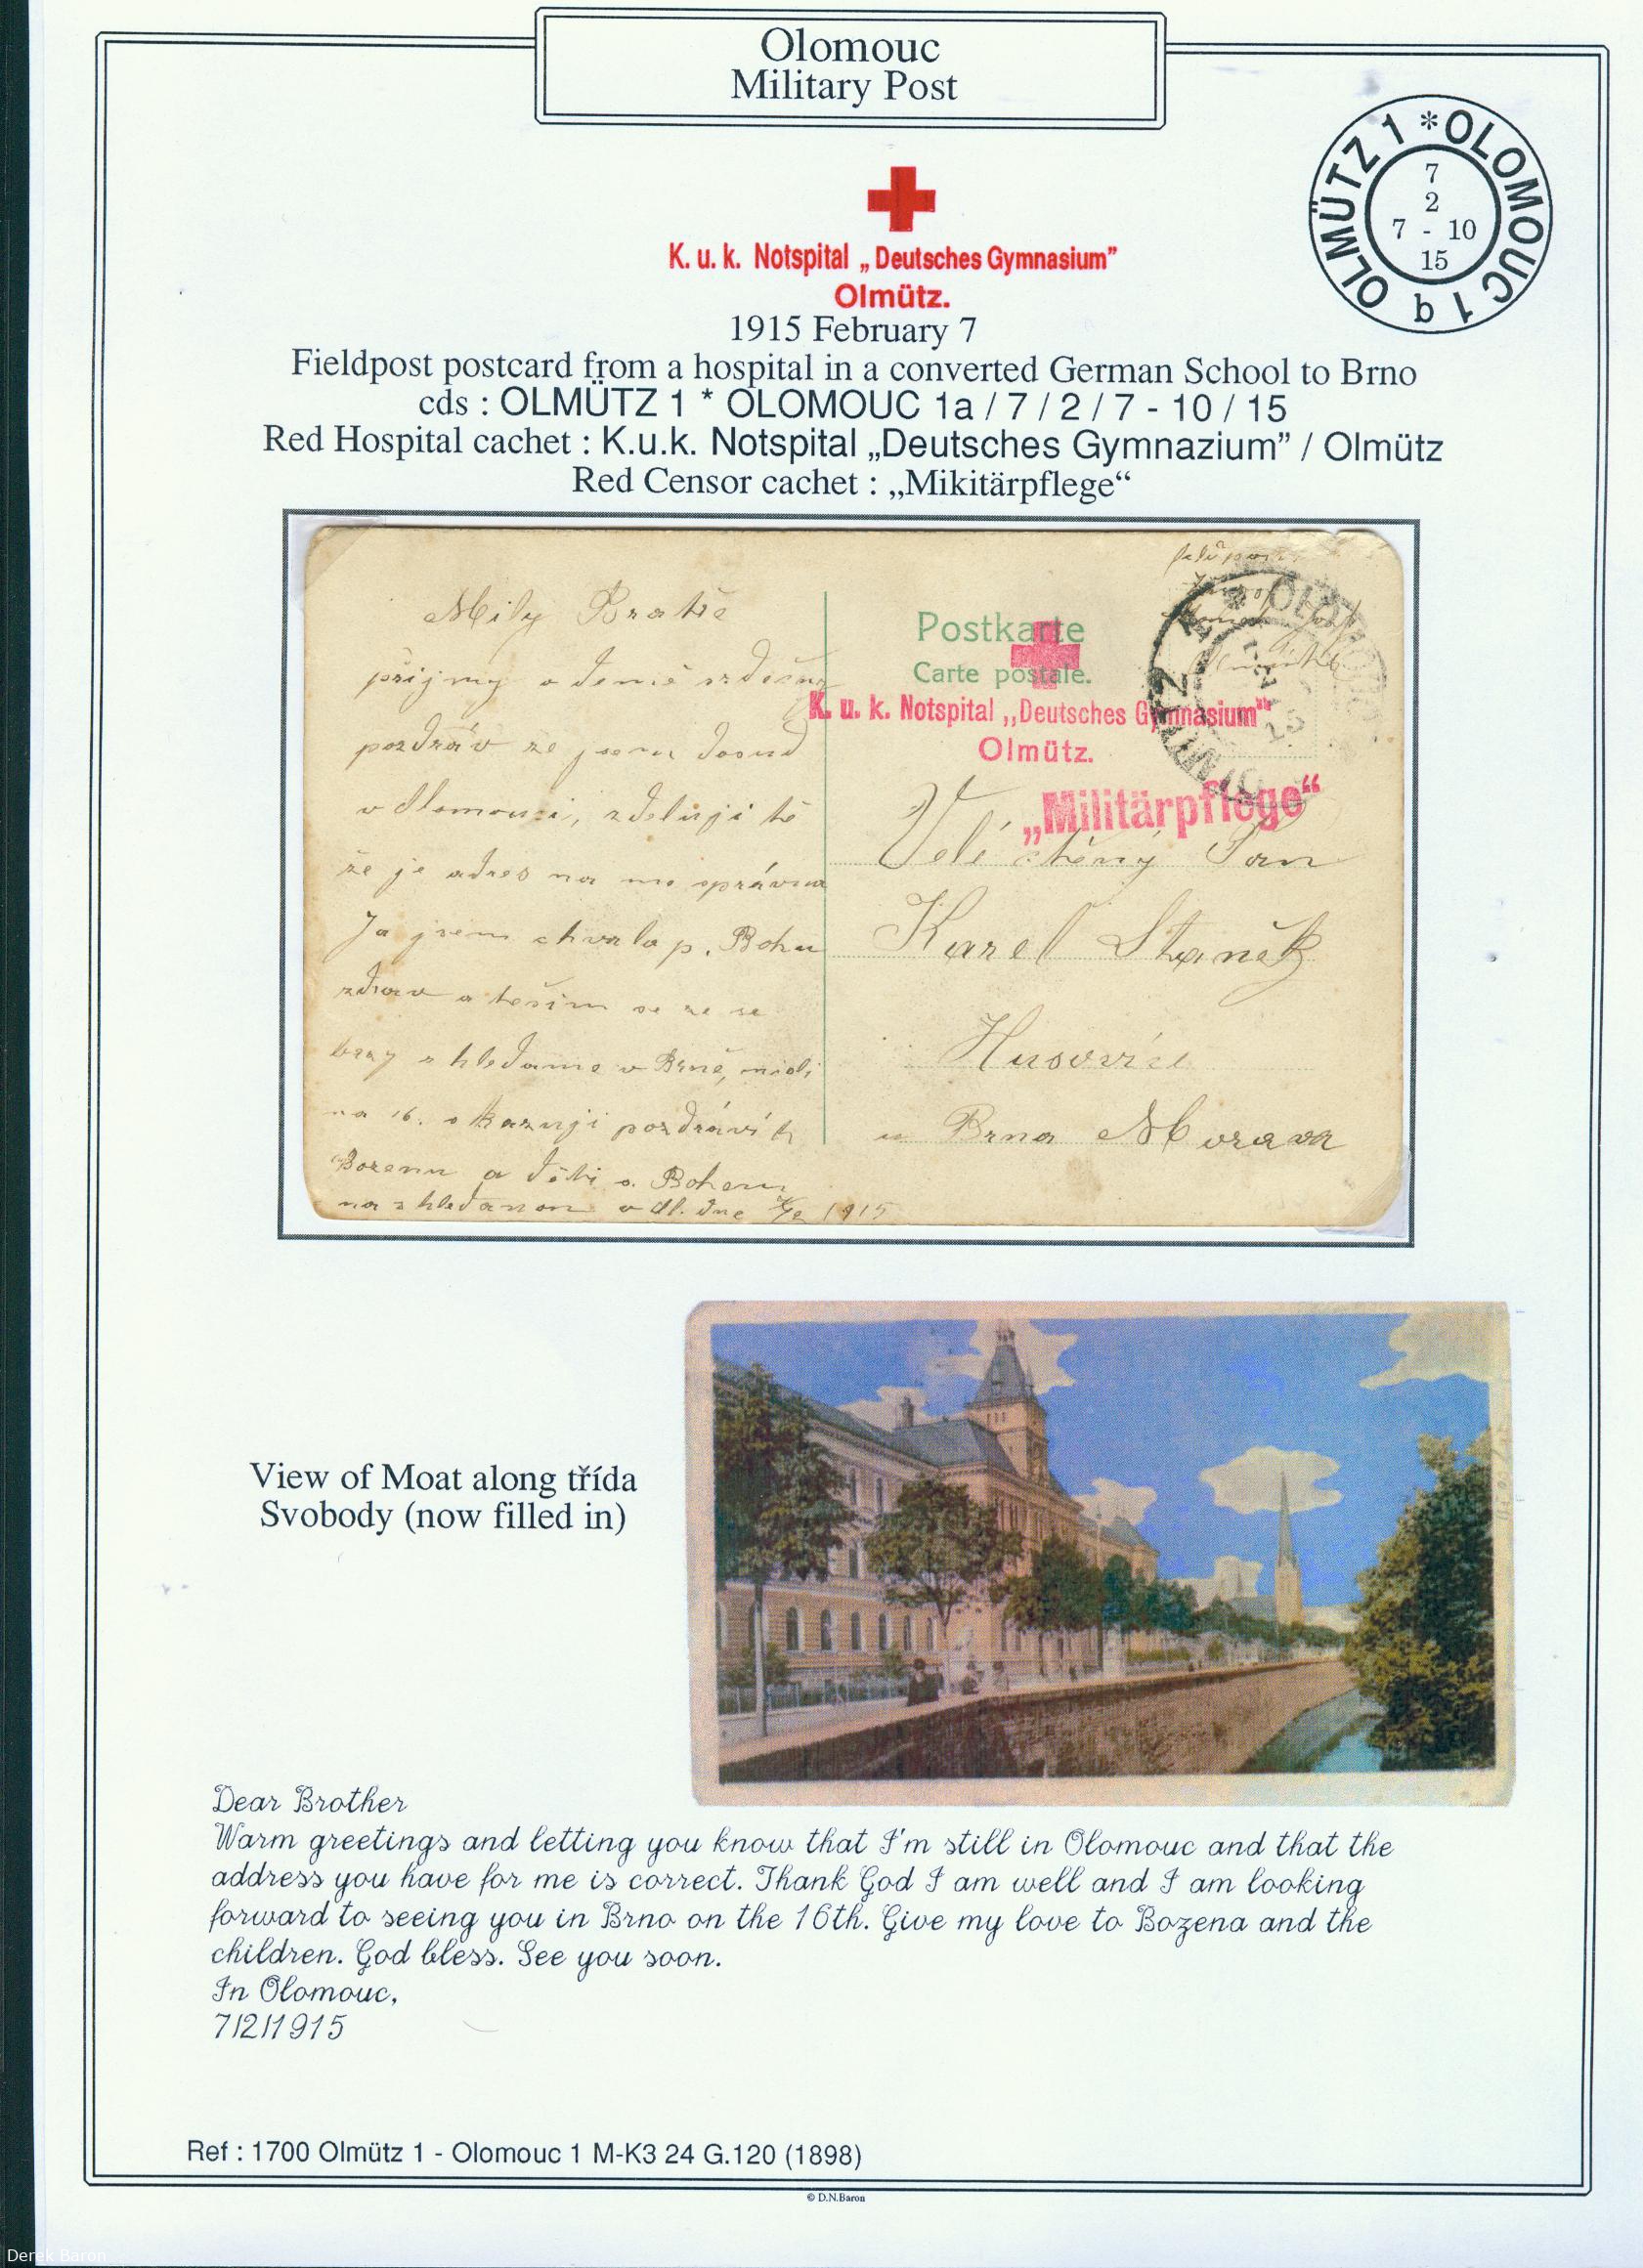 Olomouc
Military Post
OLMÜTZ 1 * OLOMOUC 1 b
7
2
7 - 10
15
K. u. k. Notspital „Deutsches Gymnasium”
Olmütz.
1915 February 7
Fieldpost postcard from a hospital in a converted German School to Brno
cds : OLMÜTZ 1 * OLOMOUC 1a / 7 / 2 / 7 - 10 / 15
Red Hospital cachet : K.u.k. Notspital „Deutsches Gymnazium” / Olmütz
Red Censor cachet : „Mikitärpflege“
Mily Bratře
přijmy odemě srdečný
pozdráv ze jsem dosud
v Olomouci, zdeluji tě
že je adres na mo správna
Ja jsem chvala p. Bohu
zdrav a tešim se ze se
brzy shledame v Brně, midi
na 16. pozdráví
Bozenu a děti s. Bohem
na shledanou v Ol. dne 7/2 1915
Postkarte
Carte postale.
K. u. k. Notspital „Deutsches Gymnasium“
Olmütz.
„Militärpflege“
Pan
Karel Staněk
Husovice
u Brna Morava
View of Moat along třída
Svobody (now filled in)
Dear Brother
Warm greetings and letting you know that I'm still in Olomouc and that the
address you have for me is correct. Thank God I am well and I am looking
forward to seeing you in Brno on the 16th. Give my love to Bozena and the
children. God bless. See you soon.
In Olomouc,
7/2/1915
Ref : 1700 Olmütz 1 - Olomouc 1 M-K3 24 G.120 (1898)
© D.N.Baron
Derek Baron